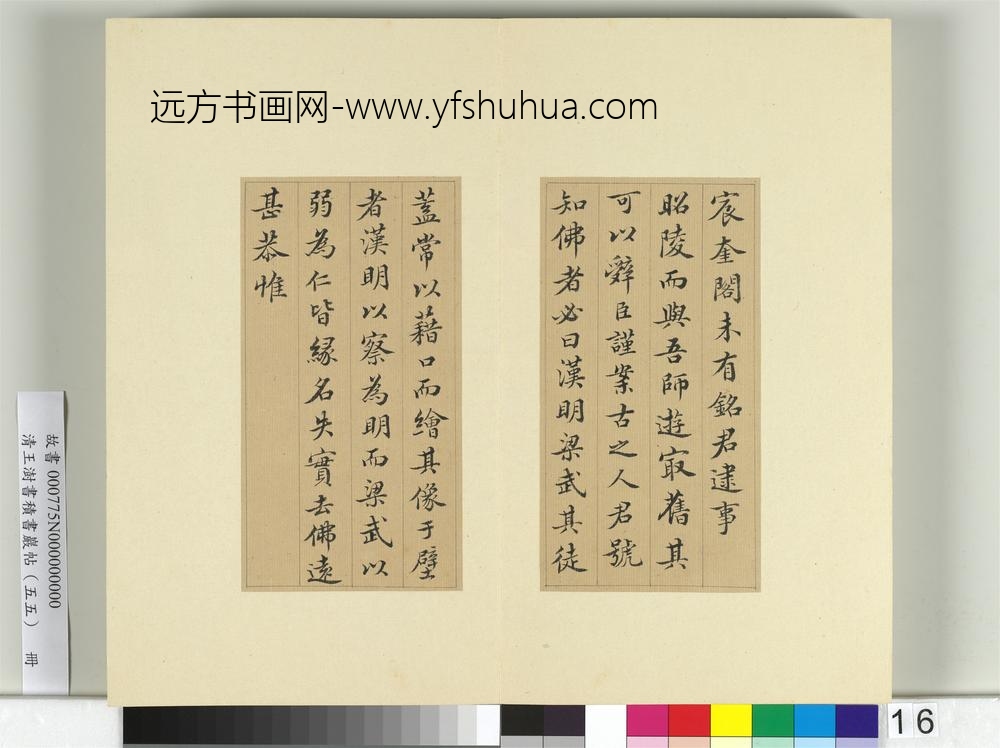 远方书画网-www.yfshuhua.com
宸奎閣未有銘君逮事
昭陵而與吾師遊冣舊其
可以辭臣謹案古之人君號
知佛者必曰漢明梁武其徒
蓋常以藉口而繪其像于壁
者漢明以察為明而梁武以
弱為仁皆緣名失實去佛遠
甚恭惟
故書000775N000000000
清王澍書積書巖帖（五五） 冊
16